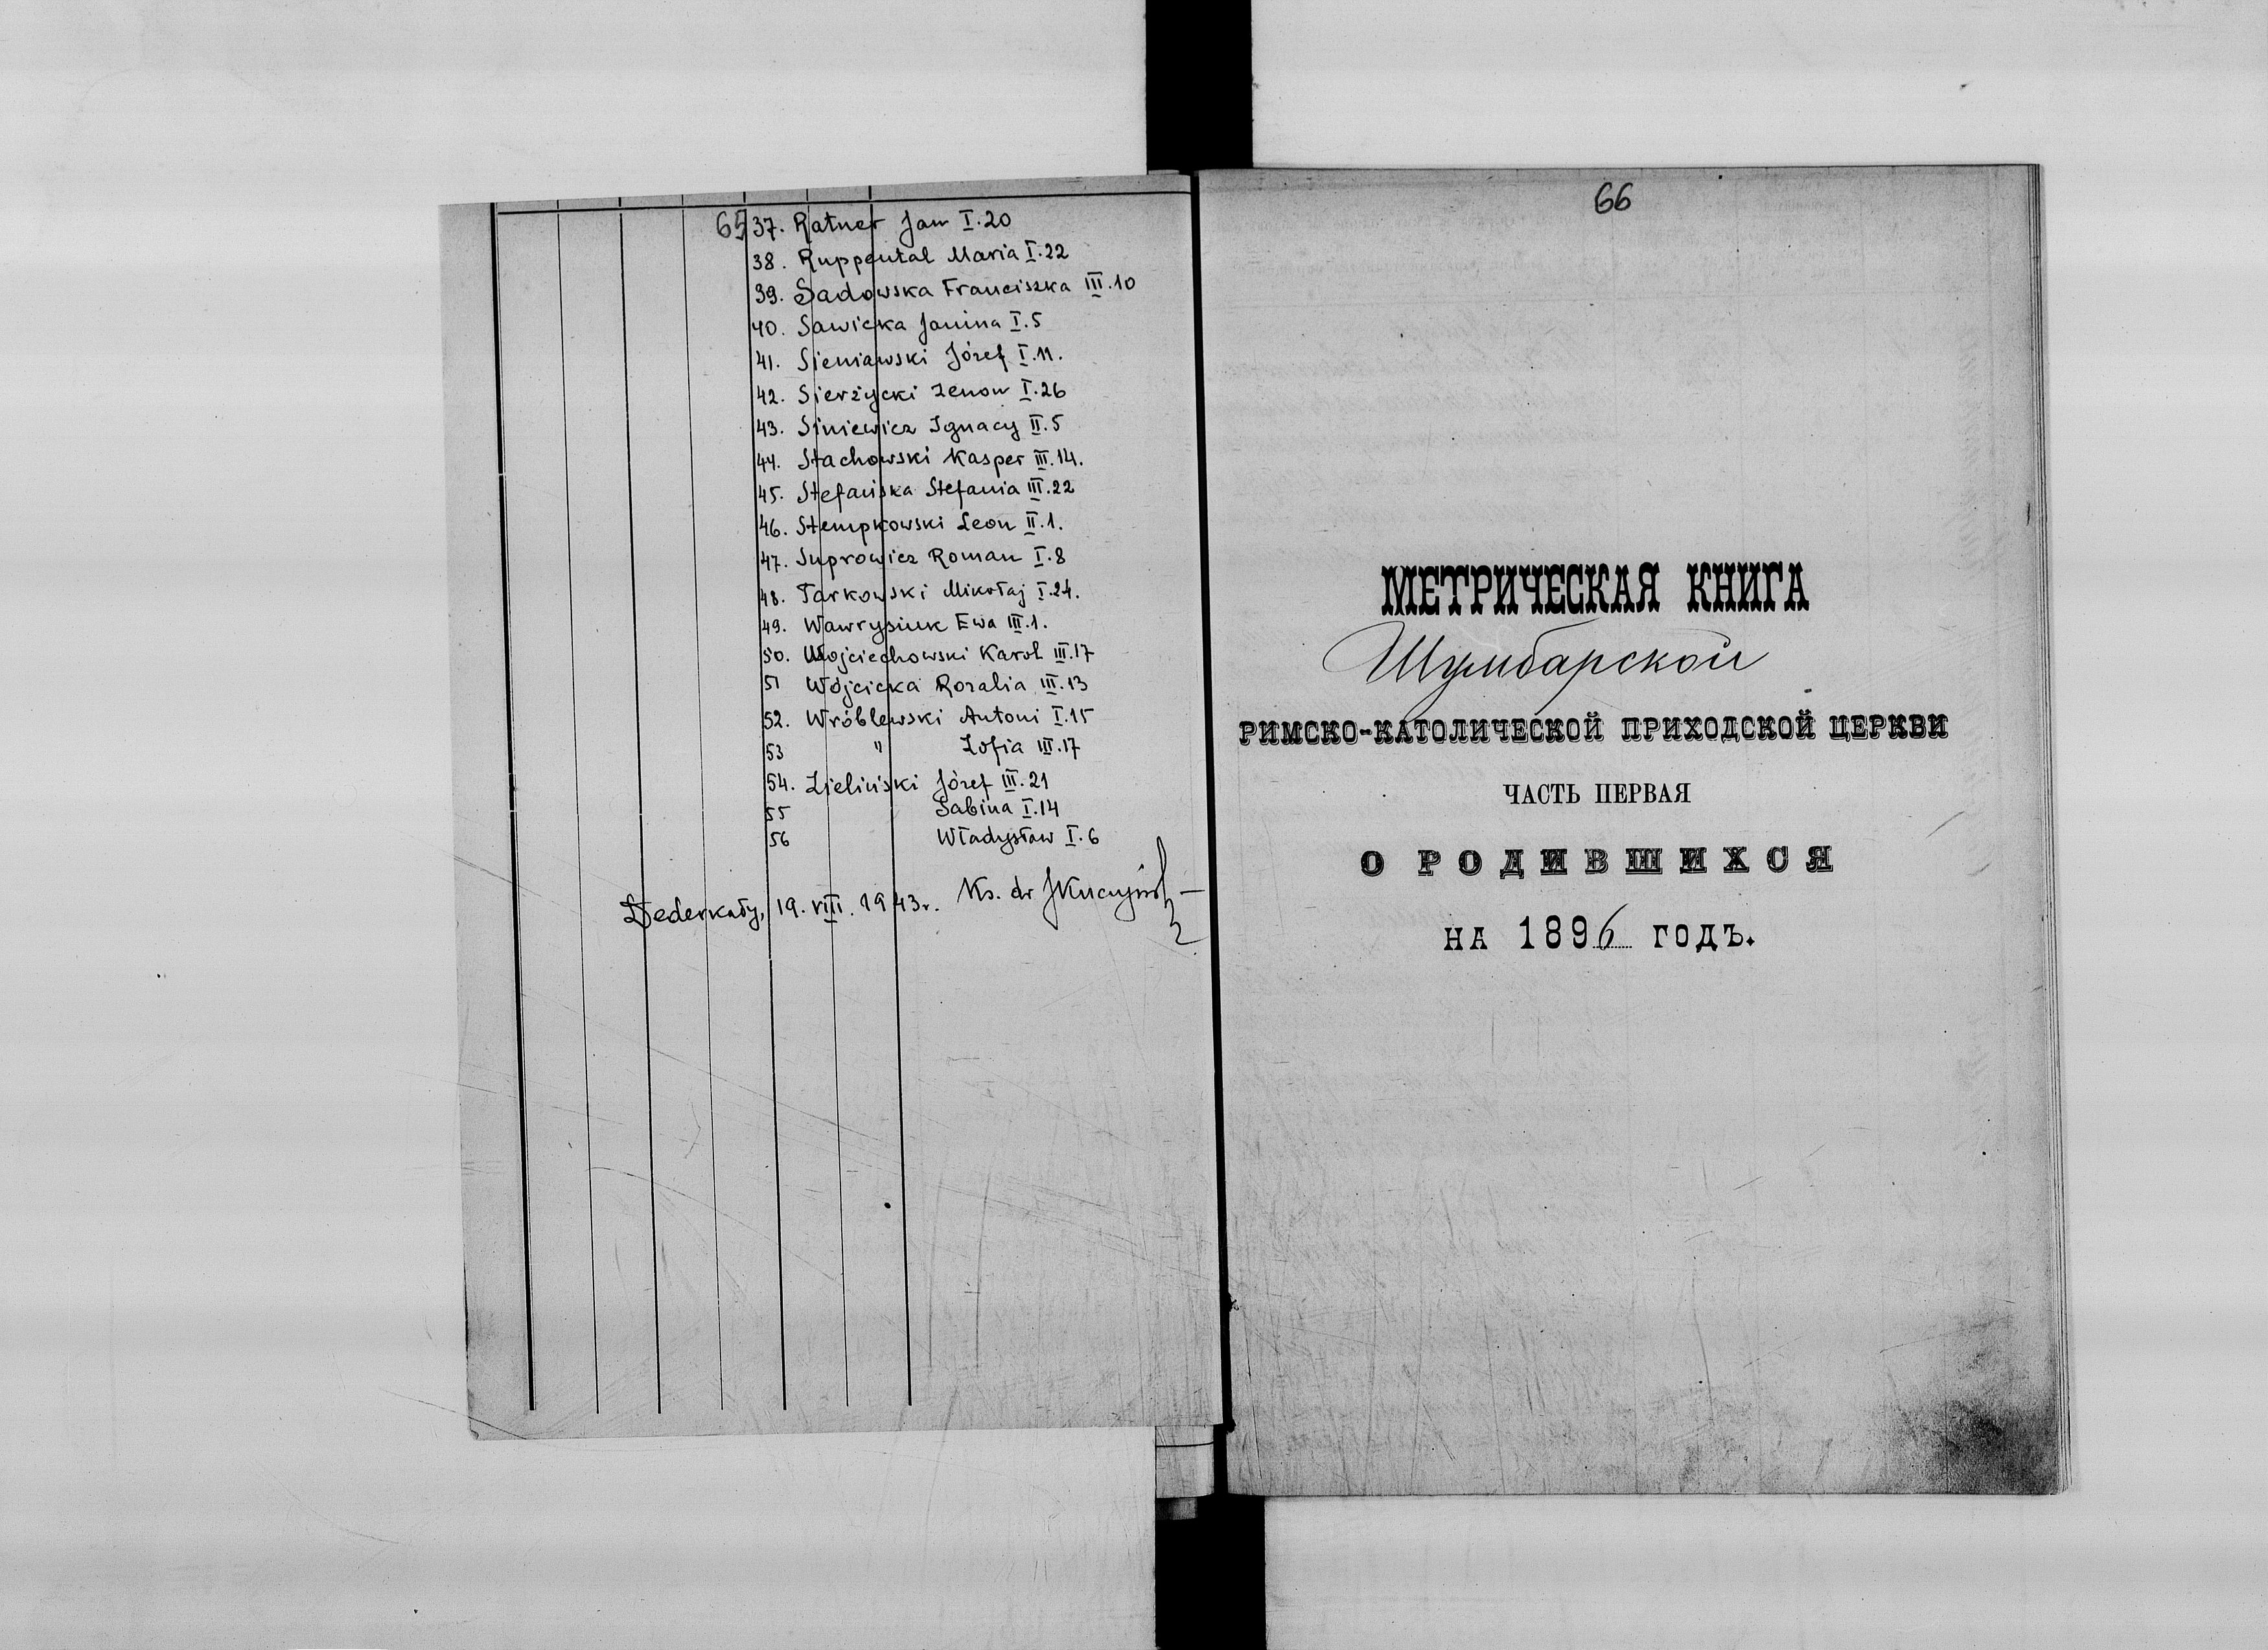 65
37. Ratner Jan I.20
38. Ruppental Maria I.22
39. Sadowska Franciszka III.10
40. Sawicka Janina I.5
41. Sieniawski Józef I.11.
42. Sierżycki Zenon I.26
43. Siniewicz Ignacy II.5
44. Stachowski Kasper III.14.
45. Stefańska Stefania III.22
46. Stempkowski Leon II.1.
47. Suprowicz Roman I.8
48. Tarkowski Mikołaj I.24.
49. Wawrysiuk Ewa III.1.
50. Wojciechowski Karol III.17
51 Wójcicka Rozalia III.13
52. Wróblewski Antoni I.15
53 " Zofia III.17
54. Zieliński Józef III.21
55 Sabina I.14
56 Władysław I.6
Dederkały, 19. VIII. 1943r. Ks. dr
66
МЕТРИЧЕСКАЯ КНИГА
Шумбарской
РИМСКО-КАТОЛИЧЕСКОЙ ПРИХОДСКОЙ ЦЕРКВИ
ЧАСТЬ ПЕРВАЯ
О РОДИВШИХСЯ
НА 1896 ГОДЪ.